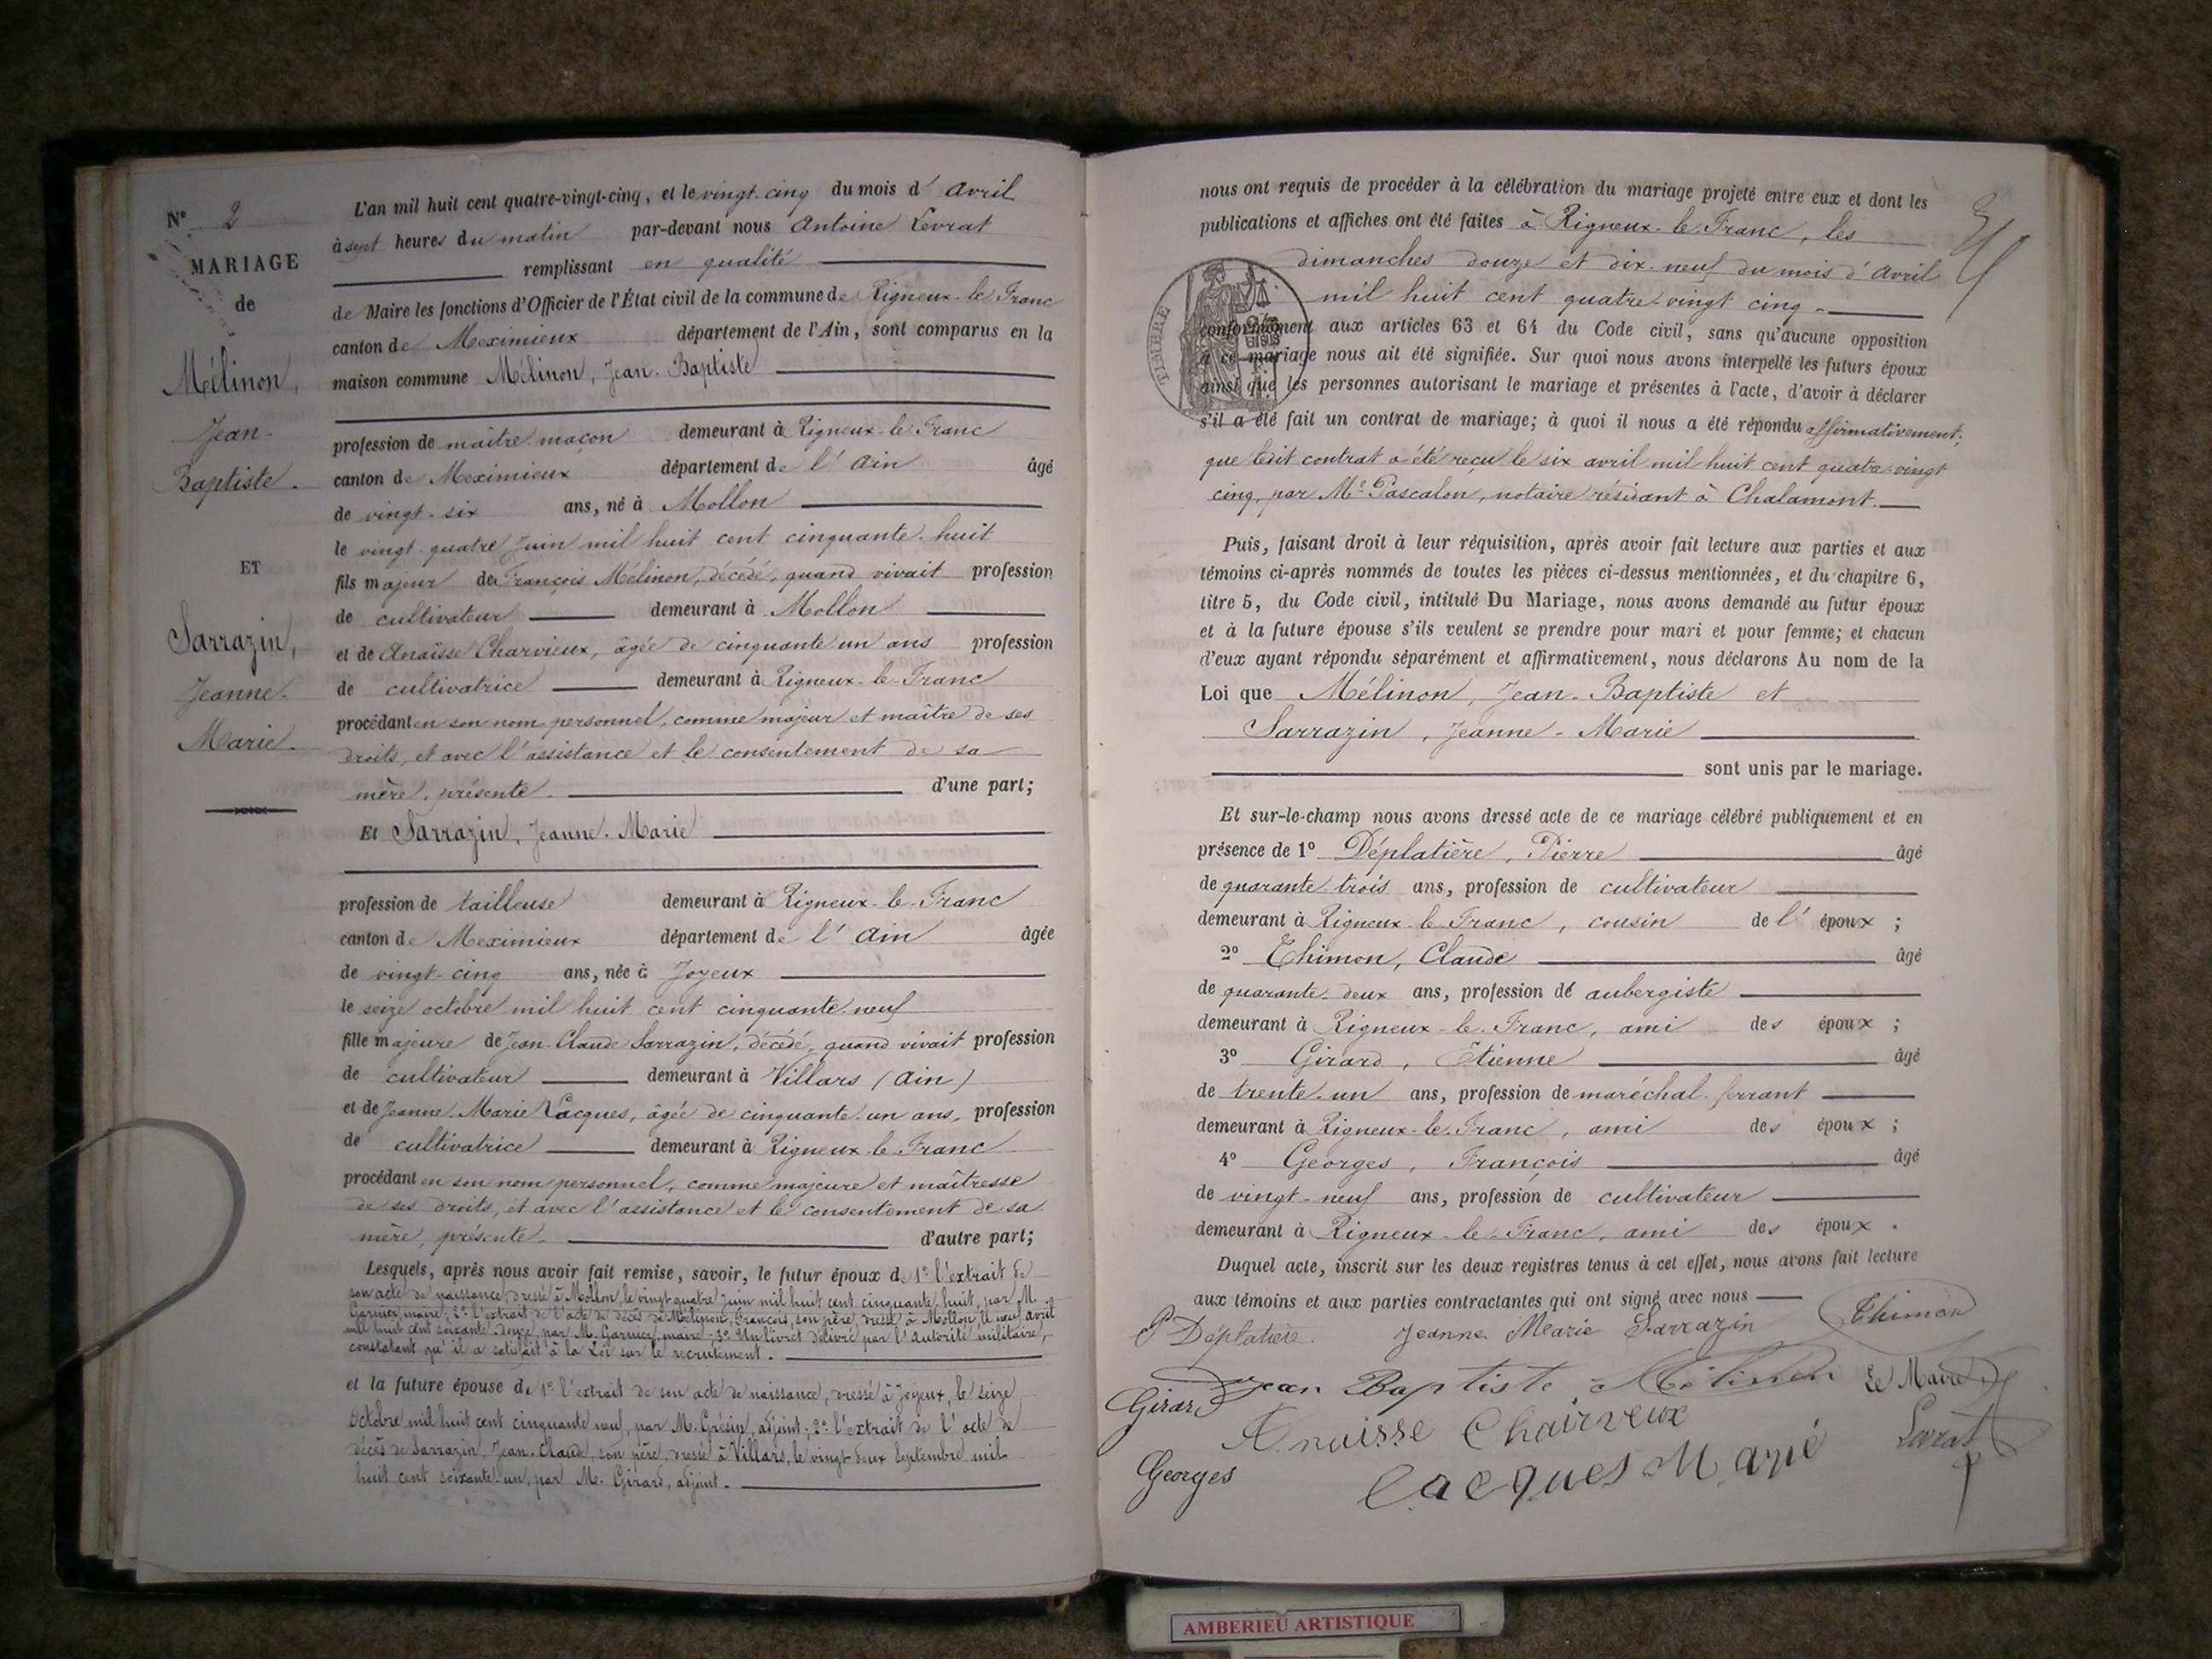 N° 2
MARIAGE
de
Mélinon,
Jean-
Baptiste.
ET
Sarrazin,
Jeanne-
Marie.
L'an mil huit cent quatre-vingt-cinq, et le vingt-cinq du mois d'Avril
à sept heures du matin par-devant nous Antoine Levrat
remplissant en qualité
de Maire les fonctions d'Officier de l'État civil de la commune de Rigneux-le-Franc
canton de Meximieux département de l'Ain, sont comparus en la
maison commune Mélinon, Jean-Baptiste
profession de maître maçon demeurant à Rigneux-le-Franc
canton de Meximieux département de l'Ain âgé
de vingt-six ans, né à Mollon
le vingt-quatre Juin mil huit cent cinquante-huit
fils majeur de François Mélinon, décédé, quand vivait profession
de cultivateur demeurant à Mollon
et de Anaïsse Charvieux, âgée de cinquante un ans profession
de cultivatrice demeurant à Rigneux-le-Franc
procédant en son nom personnel, comme majeur et maître de ses
droits, et avec l'assistance et le consentement de sa
mère, présente. d'une part;
Et Sarrazin, Jeanne-Marie
profession de tailleuse demeurant à Rigneux-le-Franc
canton de Meximieux département de l'Ain âgée
de vingt-cinq ans, née à Joyeux
le seize octobre mil huit cent cinquante-neuf
fille majeure de Jean-Claude Sarrazin, décédé, quand vivait profession
de cultivateur demeurant à Villars (Ain)
et de Jeanne-Marie Lacques, âgée de cinquante-un ans, profession
de cultivatrice demeurant à Rigneux-le-Franc
procédant en son nom personnel, comme majeure et maîtresse
de ses droits, et avec l'assistance et le consentement de sa
mère, présente. d'autre part;
Lesquels, après nous avoir fait remise, savoir, le futur époux de 1° l'extrait de
son acte de naissance, dressé à Mollon, le vingt-quatre juin mil huit cent cinquante-huit, par M.
Garnier, maire; 2° l'extrait de l'acte de décès de Mélinon, François, son père, dressé à Mollon, le neuf avril
mil huit cent soixante-douze, par M. Garnier, maire; 3° Un livret délivré par l'autorité militaire,
constatant qu'il a satisfait à la Loi sur le recrutement.
et la future épouse de 1° l'extrait de son acte de naissance, dressé à Joyeux, le seize
Octobre mil huit cent cinquante neuf, par M. Grésin, adjoint; 2° l'extrait de l'acte de
décès de Sarrazin, Jean-Claude, son père, dressé à Villars, le vingt-deux Septembre mil
huit cent soixante-un, par M. Girard, adjoint.
nous ont requis de procéder à la célébration du mariage projeté entre eux et dont les
publications et affiches ont été faites à Rigneux-le-Franc, les
dimanches douze et dix-neuf du mois d'Avril
mil huit cent quatre-vingt cinq
TIMBRE
conformément aux articles 63 et 64 du Code civil, sans qu'aucune opposition
à ce mariage nous ait été signifiée. Sur quoi nous avons interpellé les futurs époux
ainsi que les personnes autorisant le mariage et présentes à l'acte, d'avoir à déclarer
s'il a été fait un contrat de mariage; à quoi il nous a été répondu affirmativement;
que ledit contrat a été reçu le six avril mil huit cent quatre-vingt
cinq, par Me Pascalon, notaire résidant à Chalamont.
Puis, faisant droit à leur réquisition, après avoir fait lecture aux parties et aux
témoins ci-après nommés de toutes les pièces ci-dessus mentionnées, et du chapitre 6,
titre 5, du Code civil, intitulé Du Mariage, nous avons demandé au futur époux
et à la future épouse s'ils veulent se prendre pour mari et pour femme; et chacun
d'eux ayant répondu séparément et affirmativement, nous déclarons Au nom de la
Loi que Mélinon, Jean-Baptiste et
Sarrazin, Jeanne-Marie
sont unis par le mariage.
Et sur-le-champ nous avons dressé acte de ce mariage célébré publiquement et en
présence de 1° Déplatière, Pierre âgé
de quarante-trois ans, profession de cultivateur
demeurant à Rigneux-le-Franc, cousin de l'époux;
2° Thimon, Claude âgé
de quarante-deux ans, profession de aubergiste
demeurant à Rigneux-le-Franc, ami des époux;
3° Girard, Etienne âgé
de trente-un ans, profession de maréchal-ferrant
demeurant à Rigneux-le-Franc, ami des époux;
4° Georges, François âgé
de vingt-neuf ans, profession de cultivateur
demeurant à Rigneux-le-Franc, ami des époux.
Duquel acte, inscrit sur les deux registres tenus à cet effet, nous avons fait lecture
aux témoins et aux parties contractantes qui ont signé avec nous
P Déplatière. Jeanne Marie Sarrazin Thimon
Girard Jean Baptiste Mélinon Le Maire
Anaisse Chairveux Levrat
Georges Lacques Marie
AMBERIEU ARTISTIQUE